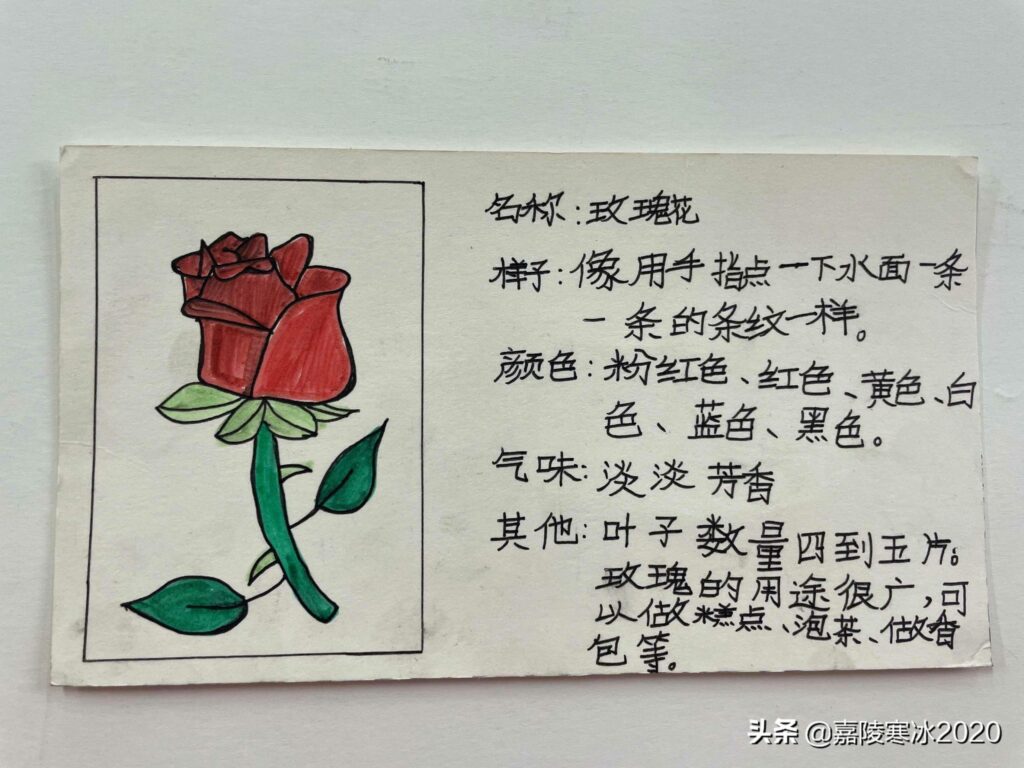 名称：玫瑰花
样子：像用手指点一下水面一条
一条的条纹一样。
颜色：粉红色、红色、黄色、白
色、蓝色、黑色。
气味：淡淡芳香
其他：叶子数量四到五片。
玫瑰的用途很广，可
以做糕点、泡茶、做香
包等。
头条 @嘉陵寒冰2020